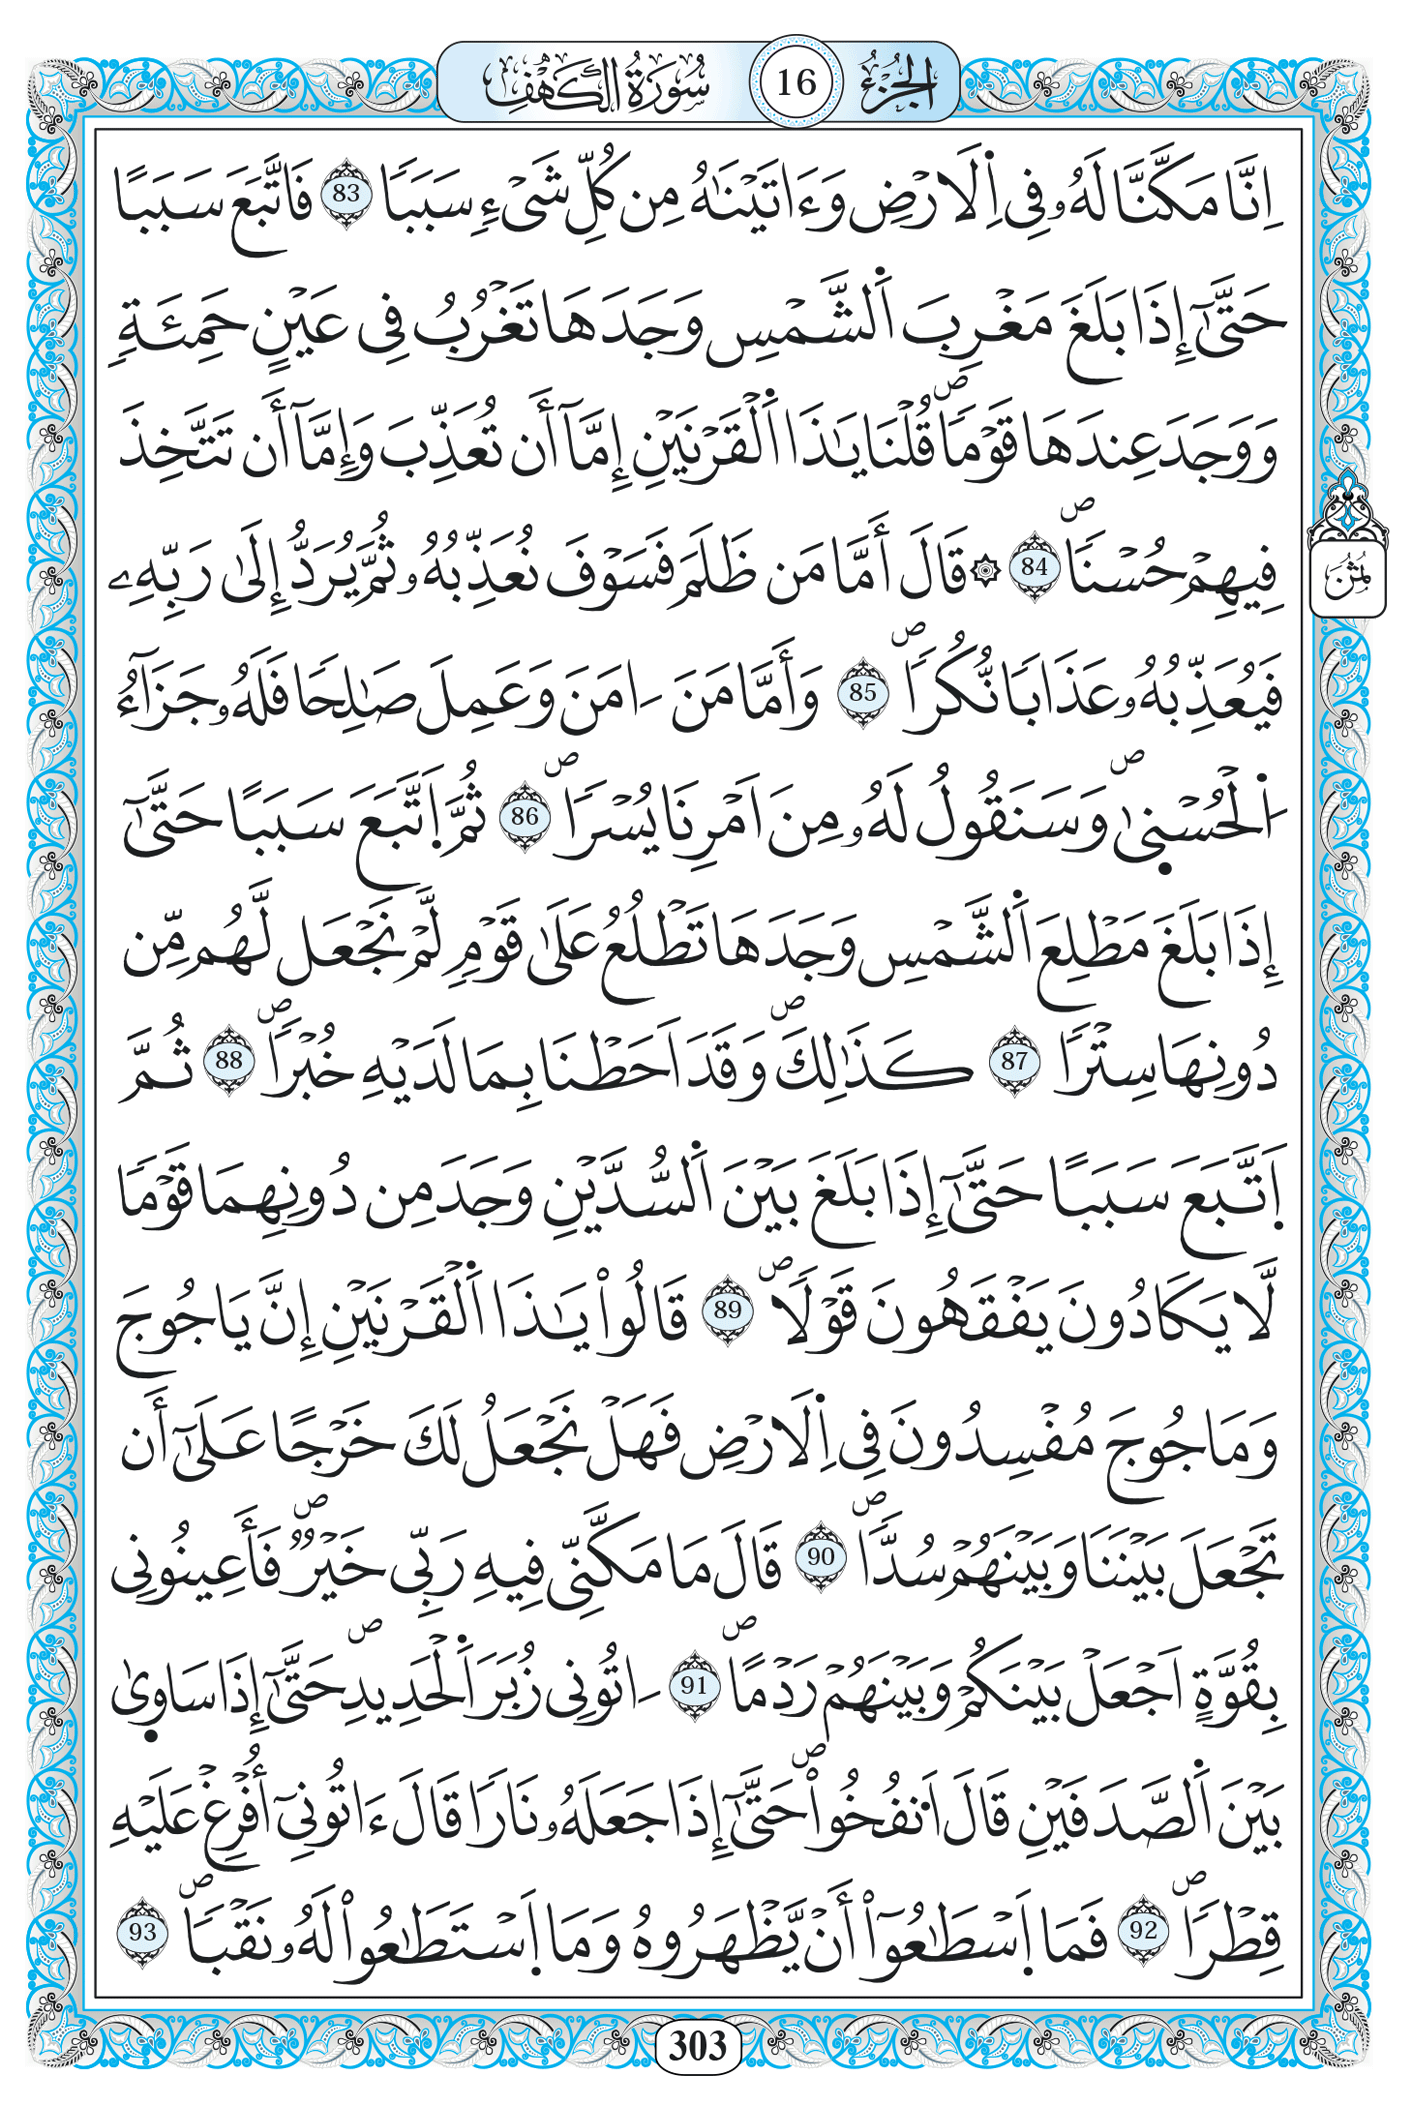 الجزء 16 سورة الكهف
اِنَّا مَكَّنَّا لَهُۥ فِي اِ۬لَارْضِ وَءَاتَيْنَٰهُ مِن كُلِّ شَيْءٖ سَبَباٗ 83 فَاتَّبَعَ سَبَباً
حَتَّىٰٓ إِذَا بَلَغَ مَغْرِبَ اَ۬لشَّمْسِ وَجَدَهَا تَغْرُبُ فِي عَيْنٍ حَمِئَةٖ
وَوَجَدَ عِندَهَا قَوْماٗۖ قُلْنَا يَٰذَا اَ۬لْقَرْنَيْنِ إِمَّآ أَن تُعَذِّبَ وَإِمَّآ أَن تَتَّخِذَ
فِيهِمْ حُسْناٗۖ 84 ۞ قَالَ أَمَّا مَن ظَلَمَ فَسَوْفَ نُعَذِّبُهُۥ ثُمَّ يُرَدُّ إِلَىٰ رَبِّهِۦ
فَيُعَذِّبُهُۥ عَذَاباٗ نُّكُراٗۖ 85 وَأَمَّا مَنَ اٰمَنَ وَعَمِلَ صَٰلِحاٗ فَلَهُۥ جَزَآءُ
اُ۬لْحُسْن۪ىٰۖ وَسَنَقُولُ لَهُۥ مِنَ اَمْرِنَا يُسْراٗۖ 86 ثُمَّ اَ۪تَّبَعَ سَبَباً حَتَّىٰٓ
إِذَا بَلَغَ مَطْلِعَ اَ۬لشَّمْسِ وَجَدَهَا تَطْلُعُ عَلَىٰ قَوْمٖ لَّمْ نَجْعَل لَّهُم مِّن
دُونِهَا سِتْراً 87 كَذَٰلِكَۖ وَقَدَ اَحَطْنَا بِمَا لَدَيْهِ خُبْراٗۖ 88 ثُمَّ
اَ۪تَّبَعَ سَبَباً حَتَّىٰٓ إِذَا بَلَغَ بَيْنَ اَ۬لسُّدَّيْنِ وَجَدَ مِن دُونِهِمَا قَوْماٗ
لَّا يَكَادُونَ يَفْقَهُونَ قَوْلاٗۖ 89 قَالُواْ يَٰذَا اَ۬لْقَرْنَيْنِ إِنَّ يَاجُوجَ
وَمَاجُوجَ مُفْسِدُونَ فِي اِ۬لَارْضِ فَهَلْ نَجْعَلُ لَكَ خَرْجاً عَلَىٰٓ أَن
تَجْعَلَ بَيْنَنَا وَبَيْنَهُمْ سُدّاٗۖ 90 قَالَ مَا مَكَّنِّي فِيهِ رَبِّي خَيْرٞۖ فَأَعِينُونِي
بِقُوَّةٍ اَجْعَلْ بَيْنَكُمْ وَبَيْنَهُمْ رَدْماًۖ 91 اٰتُونِي زُبَرَ اَ۬لْحَدِيدِۖ حَتَّىٰٓ إِذَا سَاو۪ىٰ
بَيْنَ اَ۬لصَّدَفَيْنِ قَالَ اَ۟نفُخُواْۖ حَتَّىٰٓ إِذَا جَعَلَهُۥ نَاراٗ قَالَ ءَاتُونِيٓ أُفْرِغْ عَلَيْهِ
قِطْراٗۖ 92 فَمَا اَ۪سْطَٰعُوٓاْ أَنْ يَّظْهَرُوهُ وَمَا اَ۪سْتَطَٰعُواْ لَهُۥ نَقْباٗۖ 93
ثُمُنْ
303